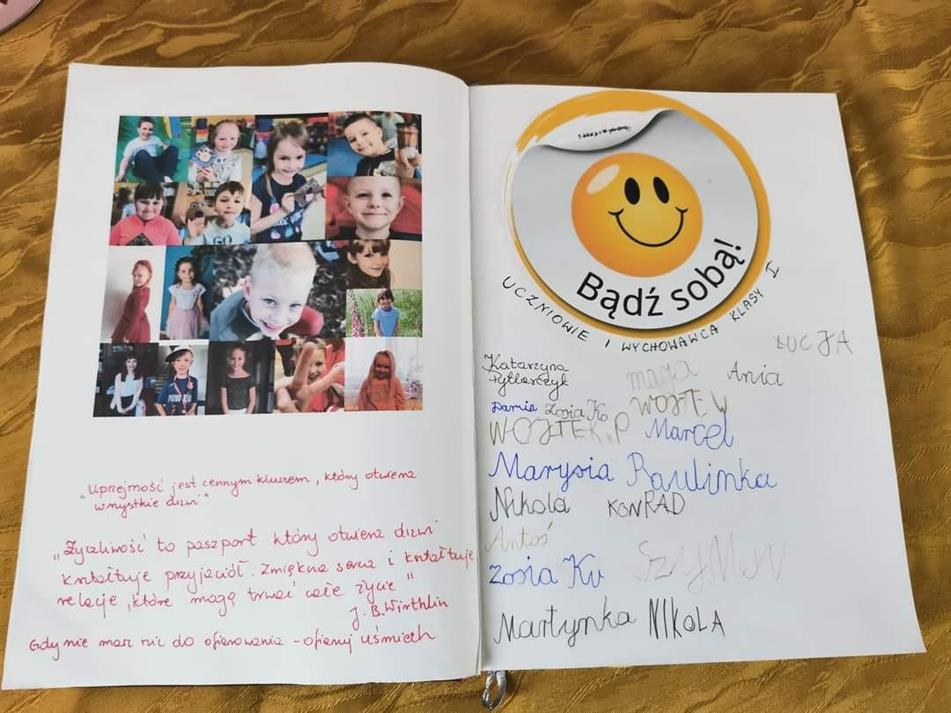 „Uprzejmość jest cennym kluczem, który otwiera
wszystkie drzwi."
„Życzliwość to paszport który otwiera drzwi
kształtuje przyjaciół. Zmiękcza serca i kształtuje
relacje, które mogą trwać całe życie"
J. B. Wirthlin
Gdy nie masz nic do ofiarowania - ofiaruj uśmiech
Bądź sobą!
UCZNIOWIE I WYCHOWAWCA KLASY I
ŁUCJA
Katarzyna
maja Ania
Zosia Ko WOJTEW
WOJTEK.P Marcel
Marysia Paulinka
Nikola KONRAD
Antoś
Zosia Ku
Martynka NIKOLA